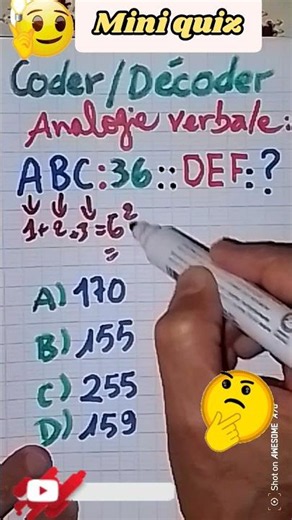 Mini quiz
Coder/Décoder
Analogie verbale:
ABC:36::DEF:?
1+2+3=6²
=
A) 170
B) 155
C) 255
D) 159
Shot on AWESOME